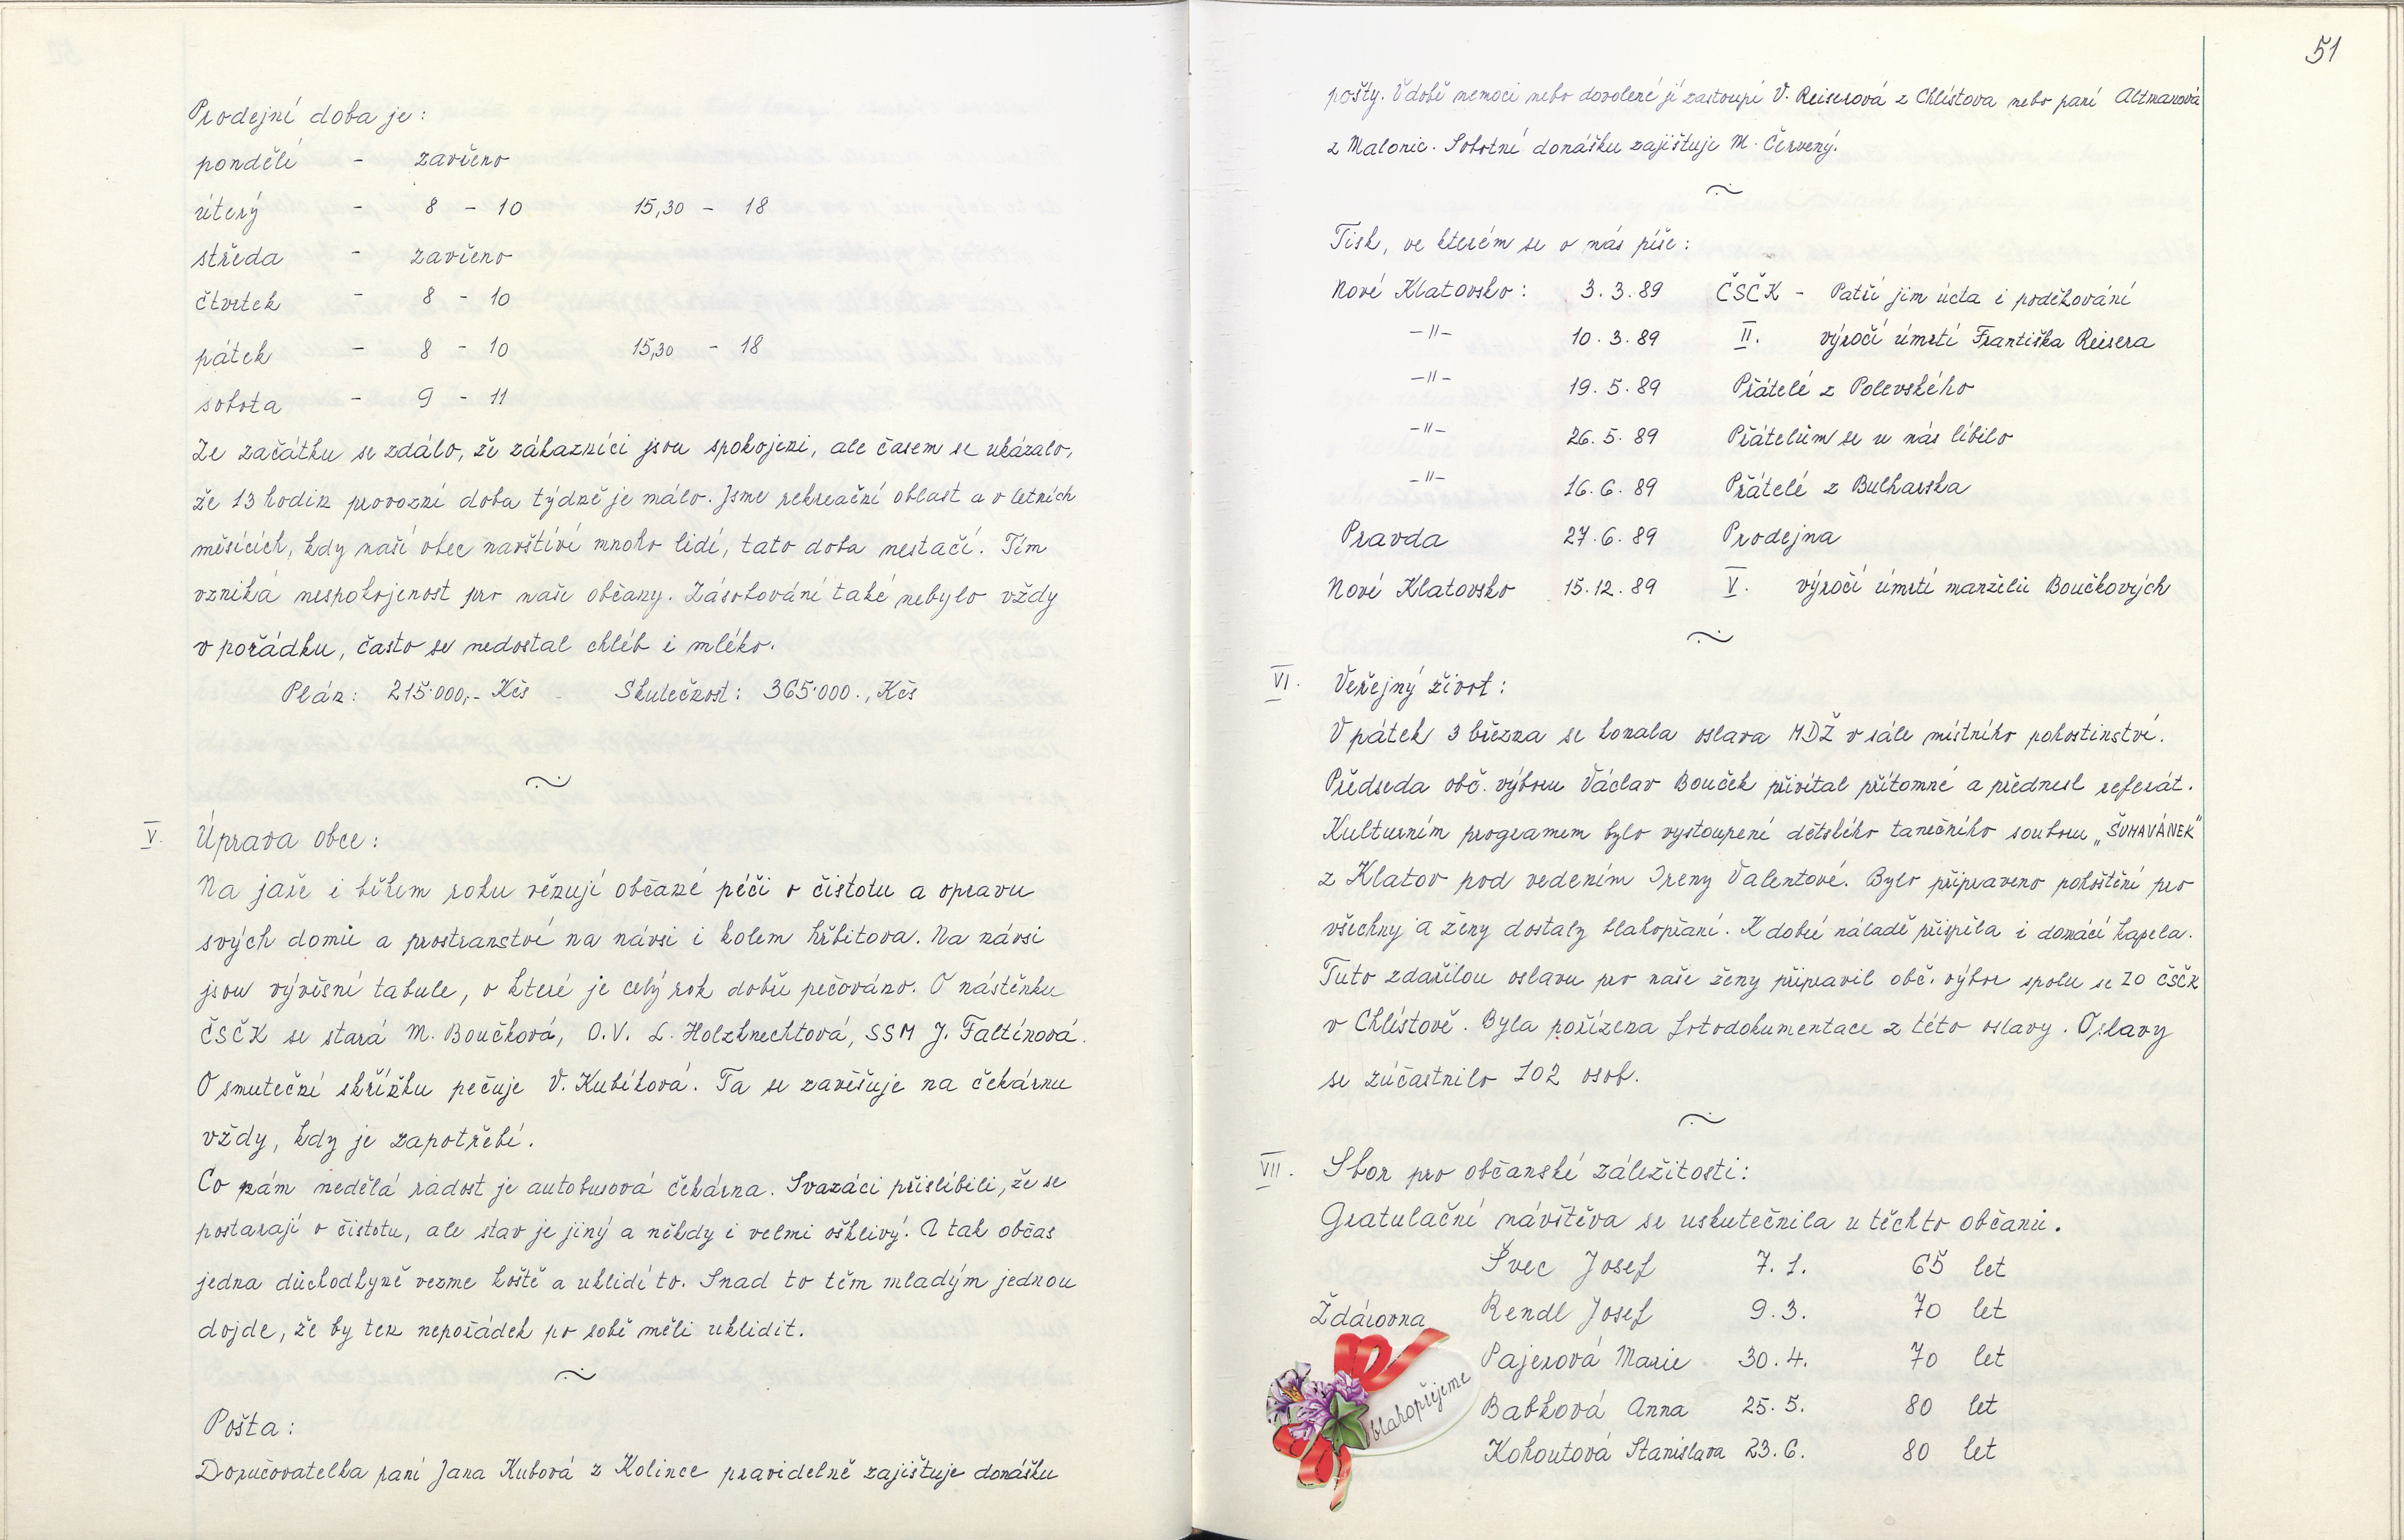 Prodejní doba je:
pondělí - zavřeno
úterý - 8 - 10 15,30 - 18
středa - zavřeno
čtvrtek - 8 - 10
pátek - 8 - 10 15,30 - 18
sobota - 9 - 11
Ze začátku se zdálo, že zákazníci jsou spokojeni, ale časem se ukázalo,
že 13 hodin provozní doba týdně je málo. Jsme rekreační oblast a v letních
měsících, kdy naší obec navštíví mnoho lidí, tato doba nestačí. Tím
vzniká nespokojenost pro naše občany. Zásobování také nebylo vždy
v pořádku, často se nedostal chléb i mléko.
Plán: 215.000,- Kčs - Skutečnost: 365.000., Kčs
V. Úprava obce:
Na jaře i během roku věnují občané péči o čistotu a opravu
svých domů a prostranství na návsi i kolem hřbitova. Na návsi
jsou vývěsní tabule, o které je celý rok dobře pečováno. O nástěnku
ČSČK se stará M. Boučková, O.V. L. Holzknechtová, SSM J. Faltínová.
O smuteční skříňku pečuje V. Kubíková. Ta se zavěšuje na čekárnu
vždy, kdy je zapotřebí.
Co nám nedělá radost je autobusová čekárna. Svazáci přislíbili, že se
postarají o čistotu, ale stav je jiný a někdy i velmi ošklivý. A tak občas
jedna důchodkyně vezme koště a uklidí to. Snad to těm mladým jednou
dojde, že by ten nepořádek po sobě měli uklidit.
Pošta:
Doručovatelka paní Jana Kubová z Kolince pravidelně zajištuje donášku
51
pošty. V době nemoci nebo dovolené jí zastoupí V. Reiserová z Chlístova nebo paní Altmanová
z Malonic. Sobotní donášku zajištuje M. Červený.
Tisk, ve kterém se o nás píše:
Nové Klatovsko: 3.3.89 ČSČK - Patří jim úcta i poděkování
-"- 10.3.89 II. výročí úmrtí Františka Reisera
-"- 19.5.89 Přátelé z Polevského
-"- 26.5.89 Přátelům se u nás líbilo
-"- 16.6.89 Přátelé z Bulharska
Pravda 27.6.89 Prodejna
Nové Klatovsko 15.12.89 V. výročí úmrtí manželů Boučkových
VI. Veřejný život:
V pátek 3 března se konala oslava MDŽ v sále místního pohostinství.
Předseda obč. výboru Václav Bouček přivítal přítomné a přednesl referát.
Kulturním programem bylo vystoupení dětského tanečního souboru „ŠUMAVÁNEK"
z Klatov pod vedením Ireny Valentové. Bylo připraveno pohoštění pro
všechny a ženy dostaly blahopřání. K dobré náladě přispěla i domácí kapela.
Tuto zdařilou oslavu pro naše ženy připravil obč. výbor spolu se ZO ČSČK
v Chlístově. Byla pořízena fotodokumentace z této oslavy. Oslavy
se zúčastnilo 102 osob.
VII. Sbor pro občanské záležitosti:
Gratulační návštěva se uskutečnila u těchto občanů.
Švec Josef 7.1. 65 let
Ždárovna Rendl Josef 9.3. 70 let
Pajerová Marie 30.4. 70 let
blahopřejeme
Babková Anna 25.5. 80 let
Kohoutová Stanislava 23.6. 80 let